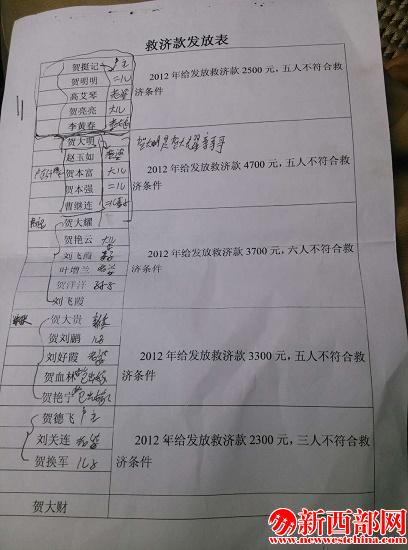 救济款发放表
贺挺记 户主
贺明明 二儿
高艾琴 老婆
贺亮亮 大儿
李黄春
2012年给发放救济款2500元，五人不符合救
济条件
贺大明
赵玉如 老婆
贺本富 大儿
贺本强 二儿
曹继连
贺大明是贺大耀亲哥哥
2012年给发放救济款4700元，五人不符合救
济条件
贺大耀
贺艳云 大儿
刘飞霞
叶增兰
贺洋洋
刘飞霞
2012年给发放救济款3700元，六人不符合救
济条件
贺大贵
贺刘鹏 儿子
刘好霞 老婆
贺血林 已出嫁
贺艳宁 已出嫁
2012年给发放救济款3300元，五人不符合救
济条件
贺德飞 户主
刘关连 老婆
贺换军 儿子
2012年给发放救济款2300元，三人不符合救
济条件
贺大财
新西部网
www.newwestchina.com